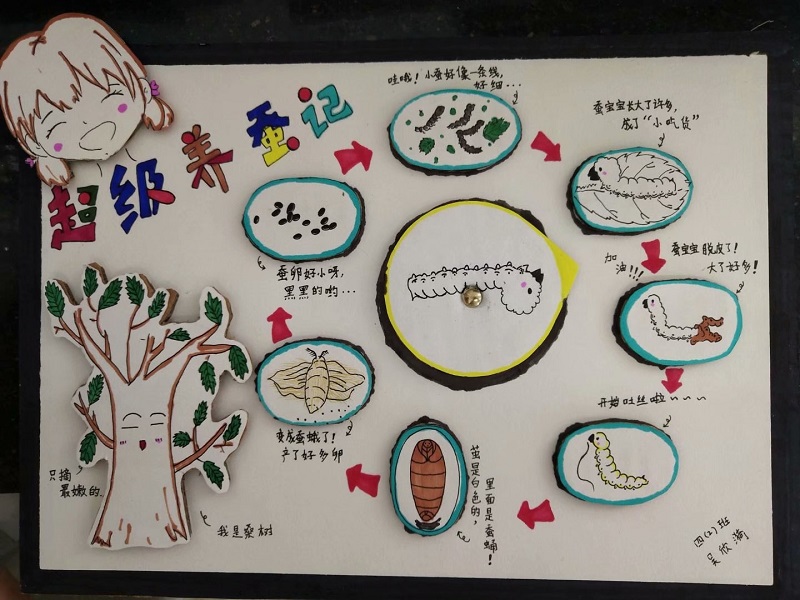 超级养蚕记
哇哦！小蚕好像一条线，
好细...
蚕宝宝长大了许多，
成了“小吃货”
蚕宝宝脱皮了！
大了好多！
加
油!!!
开始吐丝啦~~~
茧是白色的，
里面是蚕蛹！
变成蚕蛾了！
产了好多卵
蚕卵好小呀，
黑黑的哟...
只摘
最嫩的
我是桑树
四(2)班
吴欣漪